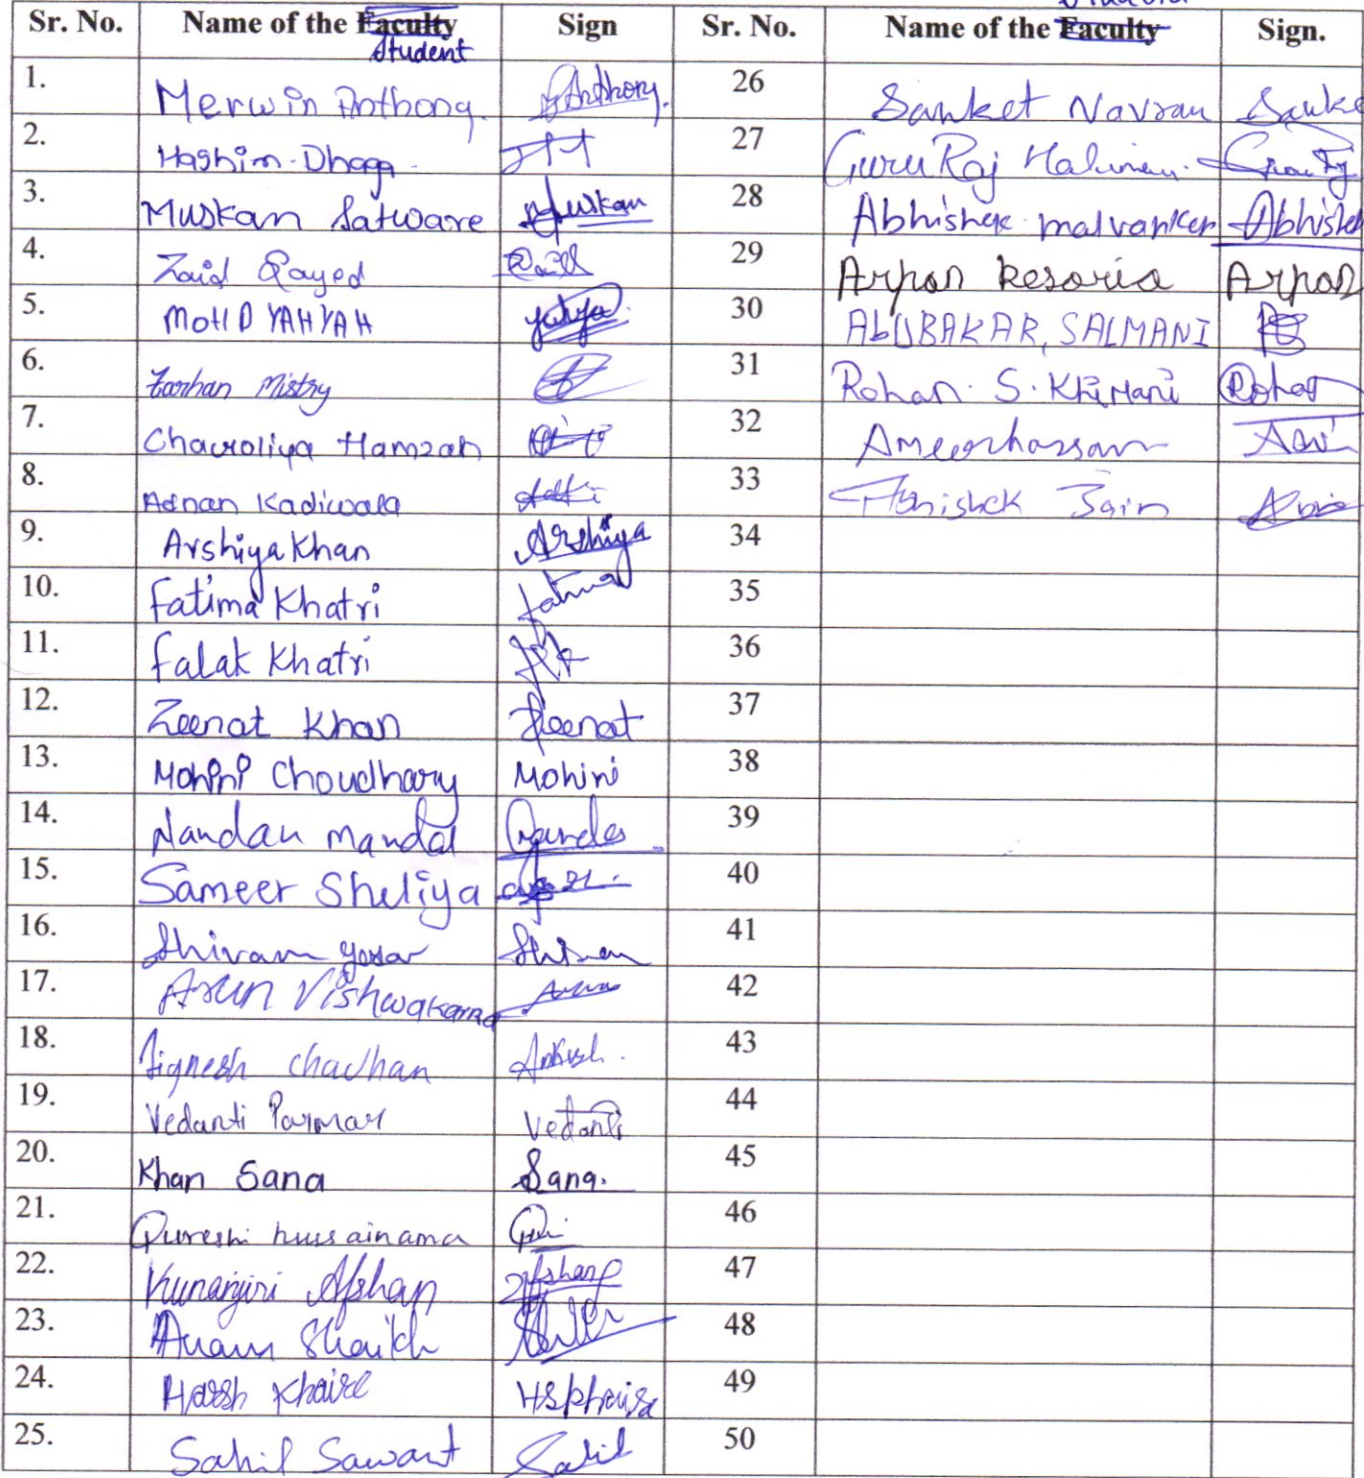 Sr. No. Name of the Faculty Sign Sr. No. Name of the Faculty Sign.
Student
1. Merwin Anthony. Anthony. 26 Sanket Navran Sanke
2. Hashim Dhaga 27 Guru Raj
3. Muskan Satware Muskan 28 Abhishek malvanker Abhishek
4. Zaid Sayed 29 Arpan kesaria Arpan
5. MOHD YAHYAH yahya 30 AbUBAKAR, SALMANI
6. Farhan Mistry 31 Rohan. S. Rohan
7. Chauroliya Hamzah 32 Ameerhassan
8. Adnan Kadiwala 33 Jain
9. Arshiya Khan Arshiya 34
10. Fatima Khatri fatima 35
11. Falak Khatri 36
12. Zeenat Khan Zeenat 37
13. Mohini Choudhary Mohini 38
14. Nandan mandal 39
15. Sameer Sheliya 40
16. Shivam yadav 41
17. Arun Vishwakarma 42
18. Jignesh chauhan Ankush. 43
19. Vedanti Parmar Vedanti 44
20. Khan Sana Sana. 45
21. Qureshi hussainama 46
22. Afshan Afshan 47
23. Anam Shaikh 48
24. Harsh Khaire 49
25. Sahil Sawant Sahil 50